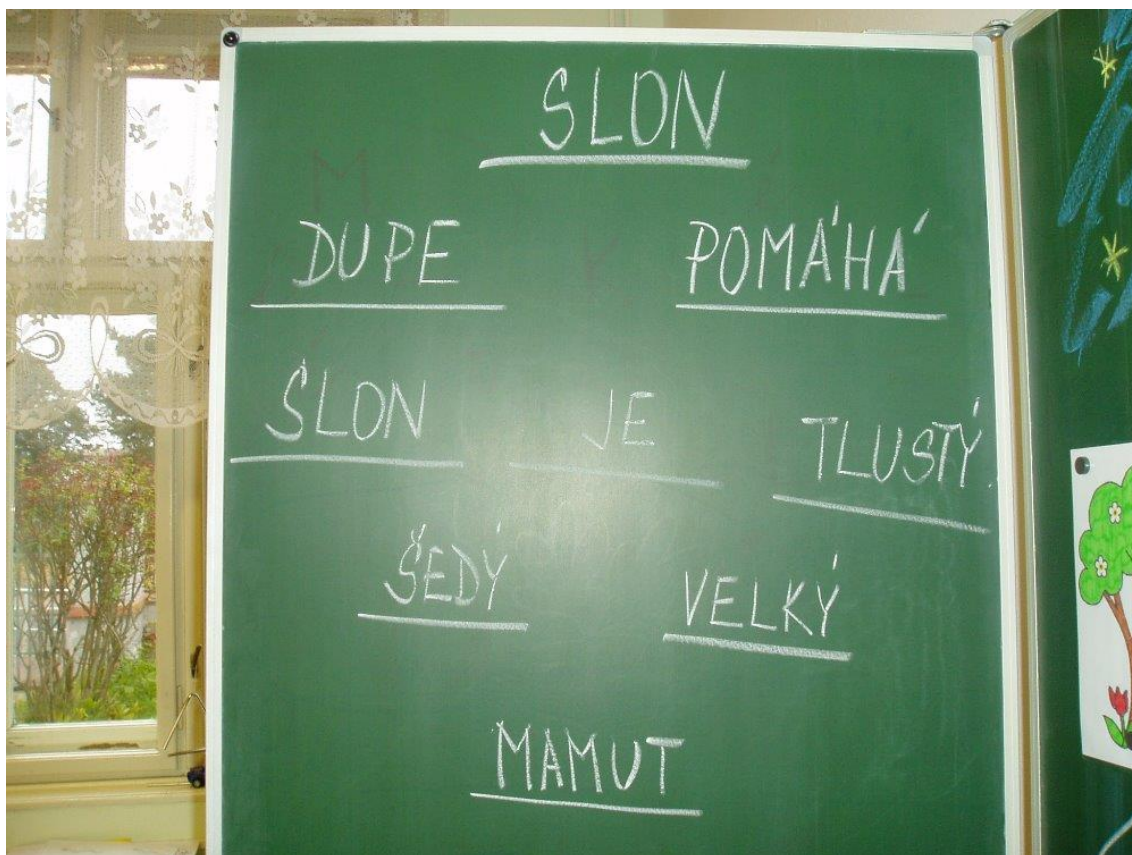 SLON
DUPE POMÁHÁ
SLON JE TLUSTÝ.
ŠEDÝ VELKÝ
MAMUT